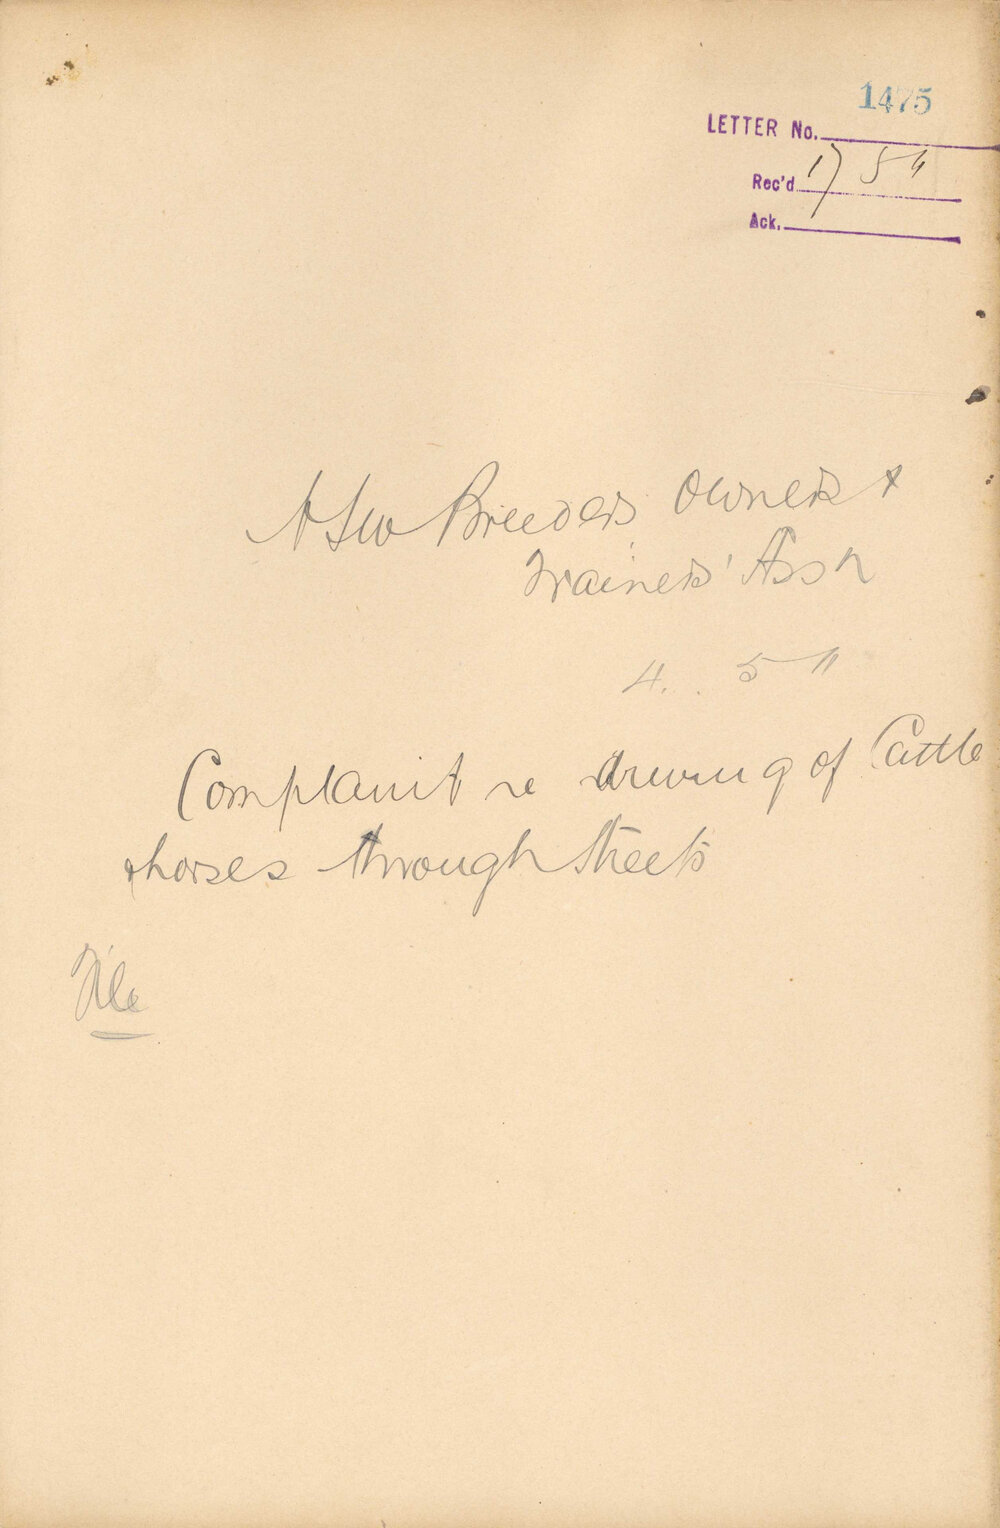 1475
LETTER No.
Rec'd 17 5 11
Ack.
NSW Breeders Owners &
Trainers' Assn
4. 5 11
Complaint re driving of Cattle
& horses through Streets
File